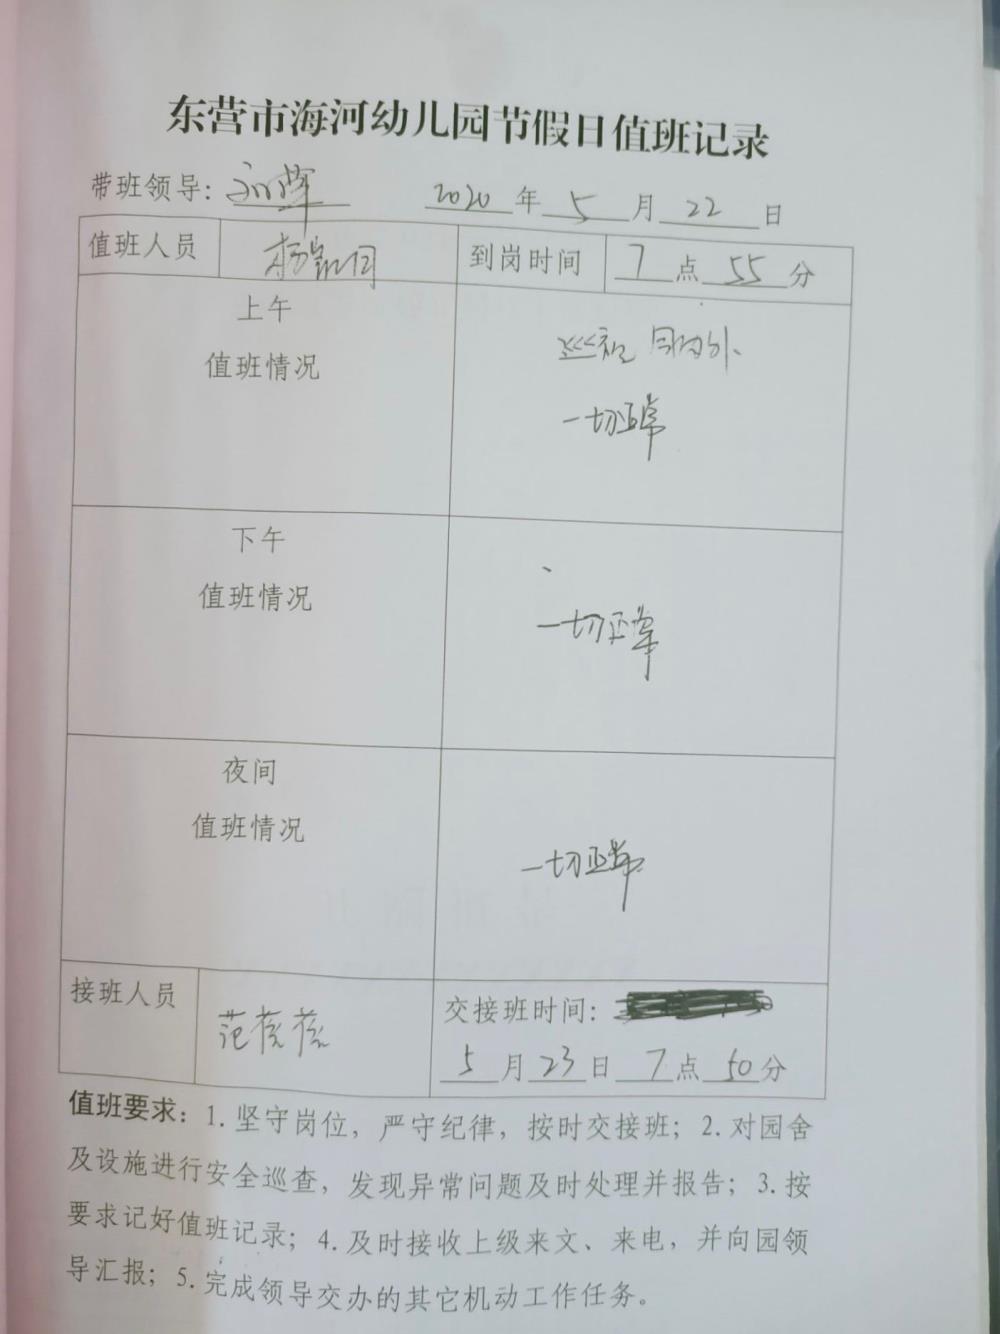 东营市海河幼儿园节假日值班记录
带班领导: 2020 年 5 月 22 日
值班人员 杨 到岗时间 7 点 55 分
上午
值班情况
巡视园内外、
一切正常
下午
值班情况
一切正常
夜间
值班情况
一切正常
接班人员 范蓓蓓 交接班时间:
5 月 23 日 7 点 50 分
值班要求: 1. 坚守岗位, 严守纪律, 按时交接班; 2. 对园舍
及设施进行安全巡查, 发现异常问题及时处理并报告; 3. 按
要求记好值班记录; 4. 及时接收上级来文、来电, 并向园领
导汇报; 5. 完成领导交办的其它机动工作任务。